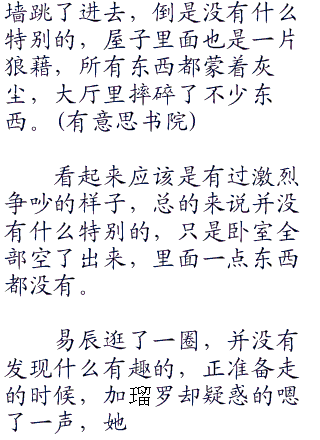 墙跳了进去，倒是没有什么
特别的，屋子里面也是一片
狼藉，所有东西都蒙着灰
尘，大厅里摔碎了不少东
西。(有意思书院)
看起来应该是有过激烈
争吵的样子，总的来说并没
有什么特别的，只是卧室全
部空了出来，里面一点东西
都没有。
易辰逛了一圈，并没有
发现什么有趣的，正准备走
的时候，加瑠罗却疑惑的嗯
了一声，她